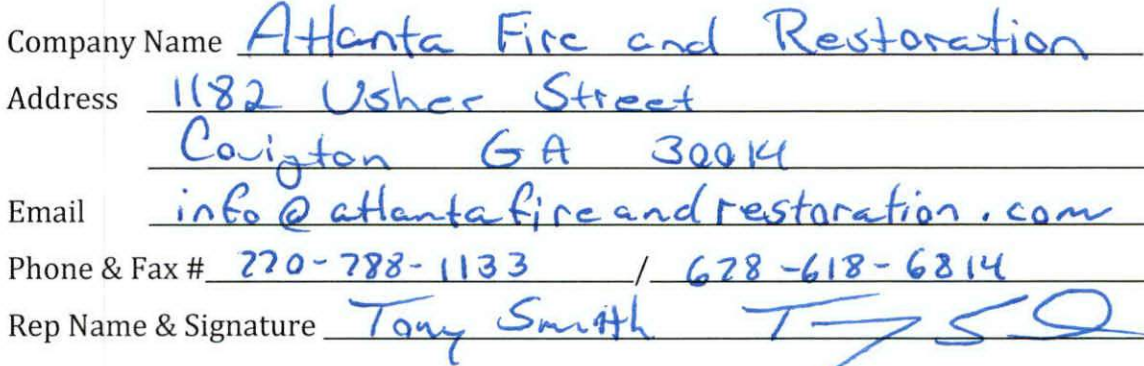 Company Name Atlanta Fire and Restoration
Address 1182 Usher Street
Covigton GA 30014
Email info@atlantafireandrestoration.com
Phone & Fax # 770-788-1133 / 678-618-6814
Rep Name & Signature Tony Smith